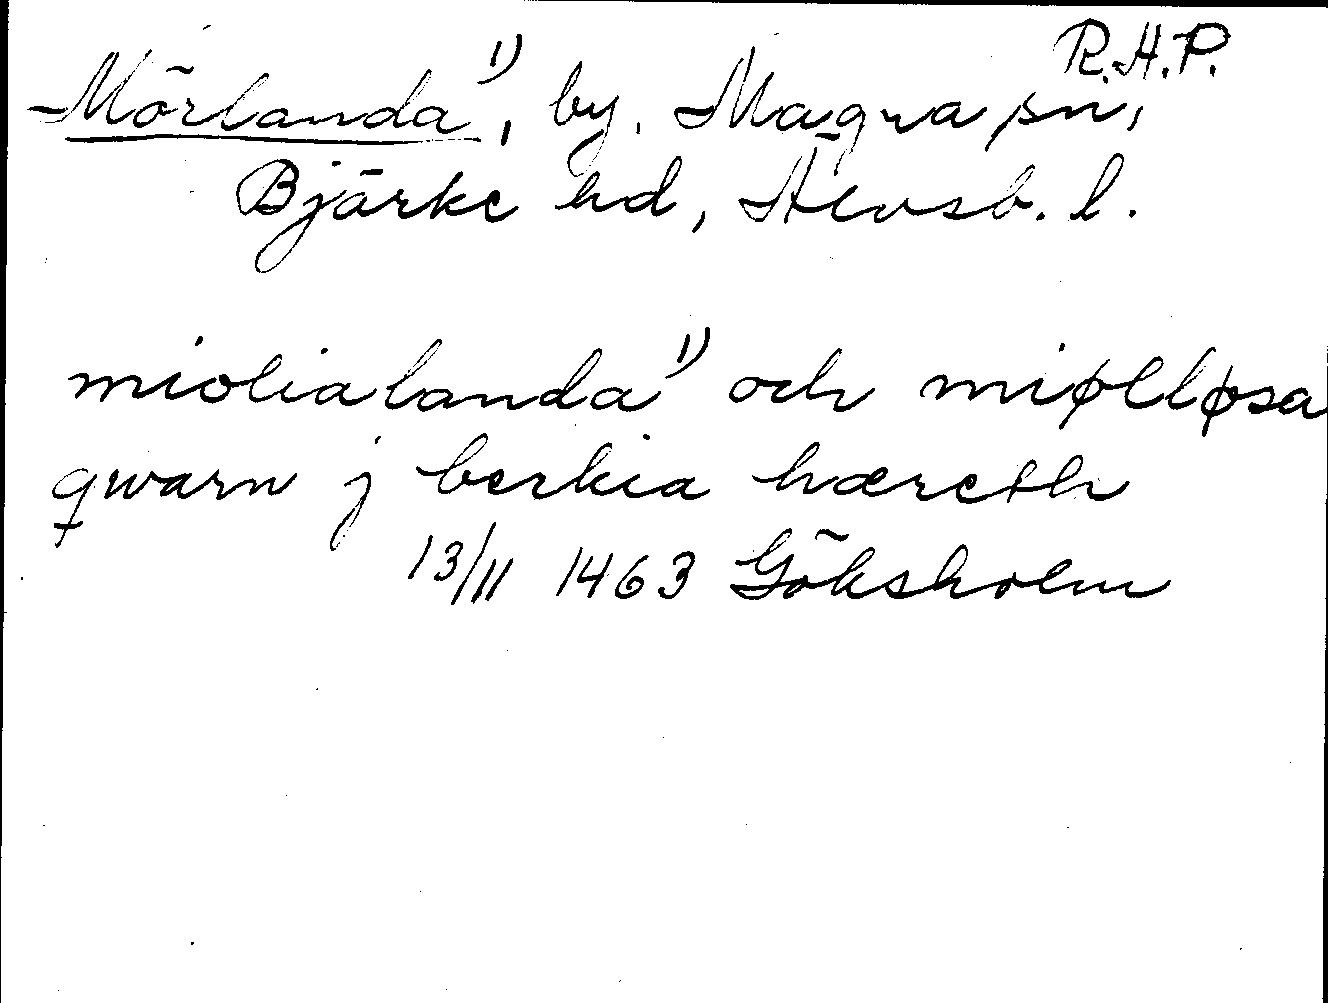 R.H.P.
Mörlanda¹⁾, by. Magra sn,
Bjärke hd, Älvsb. l.
miolialanda¹⁾ och miølløsa
qwarn j berkia hæreth
13/11 1463 Göksholm